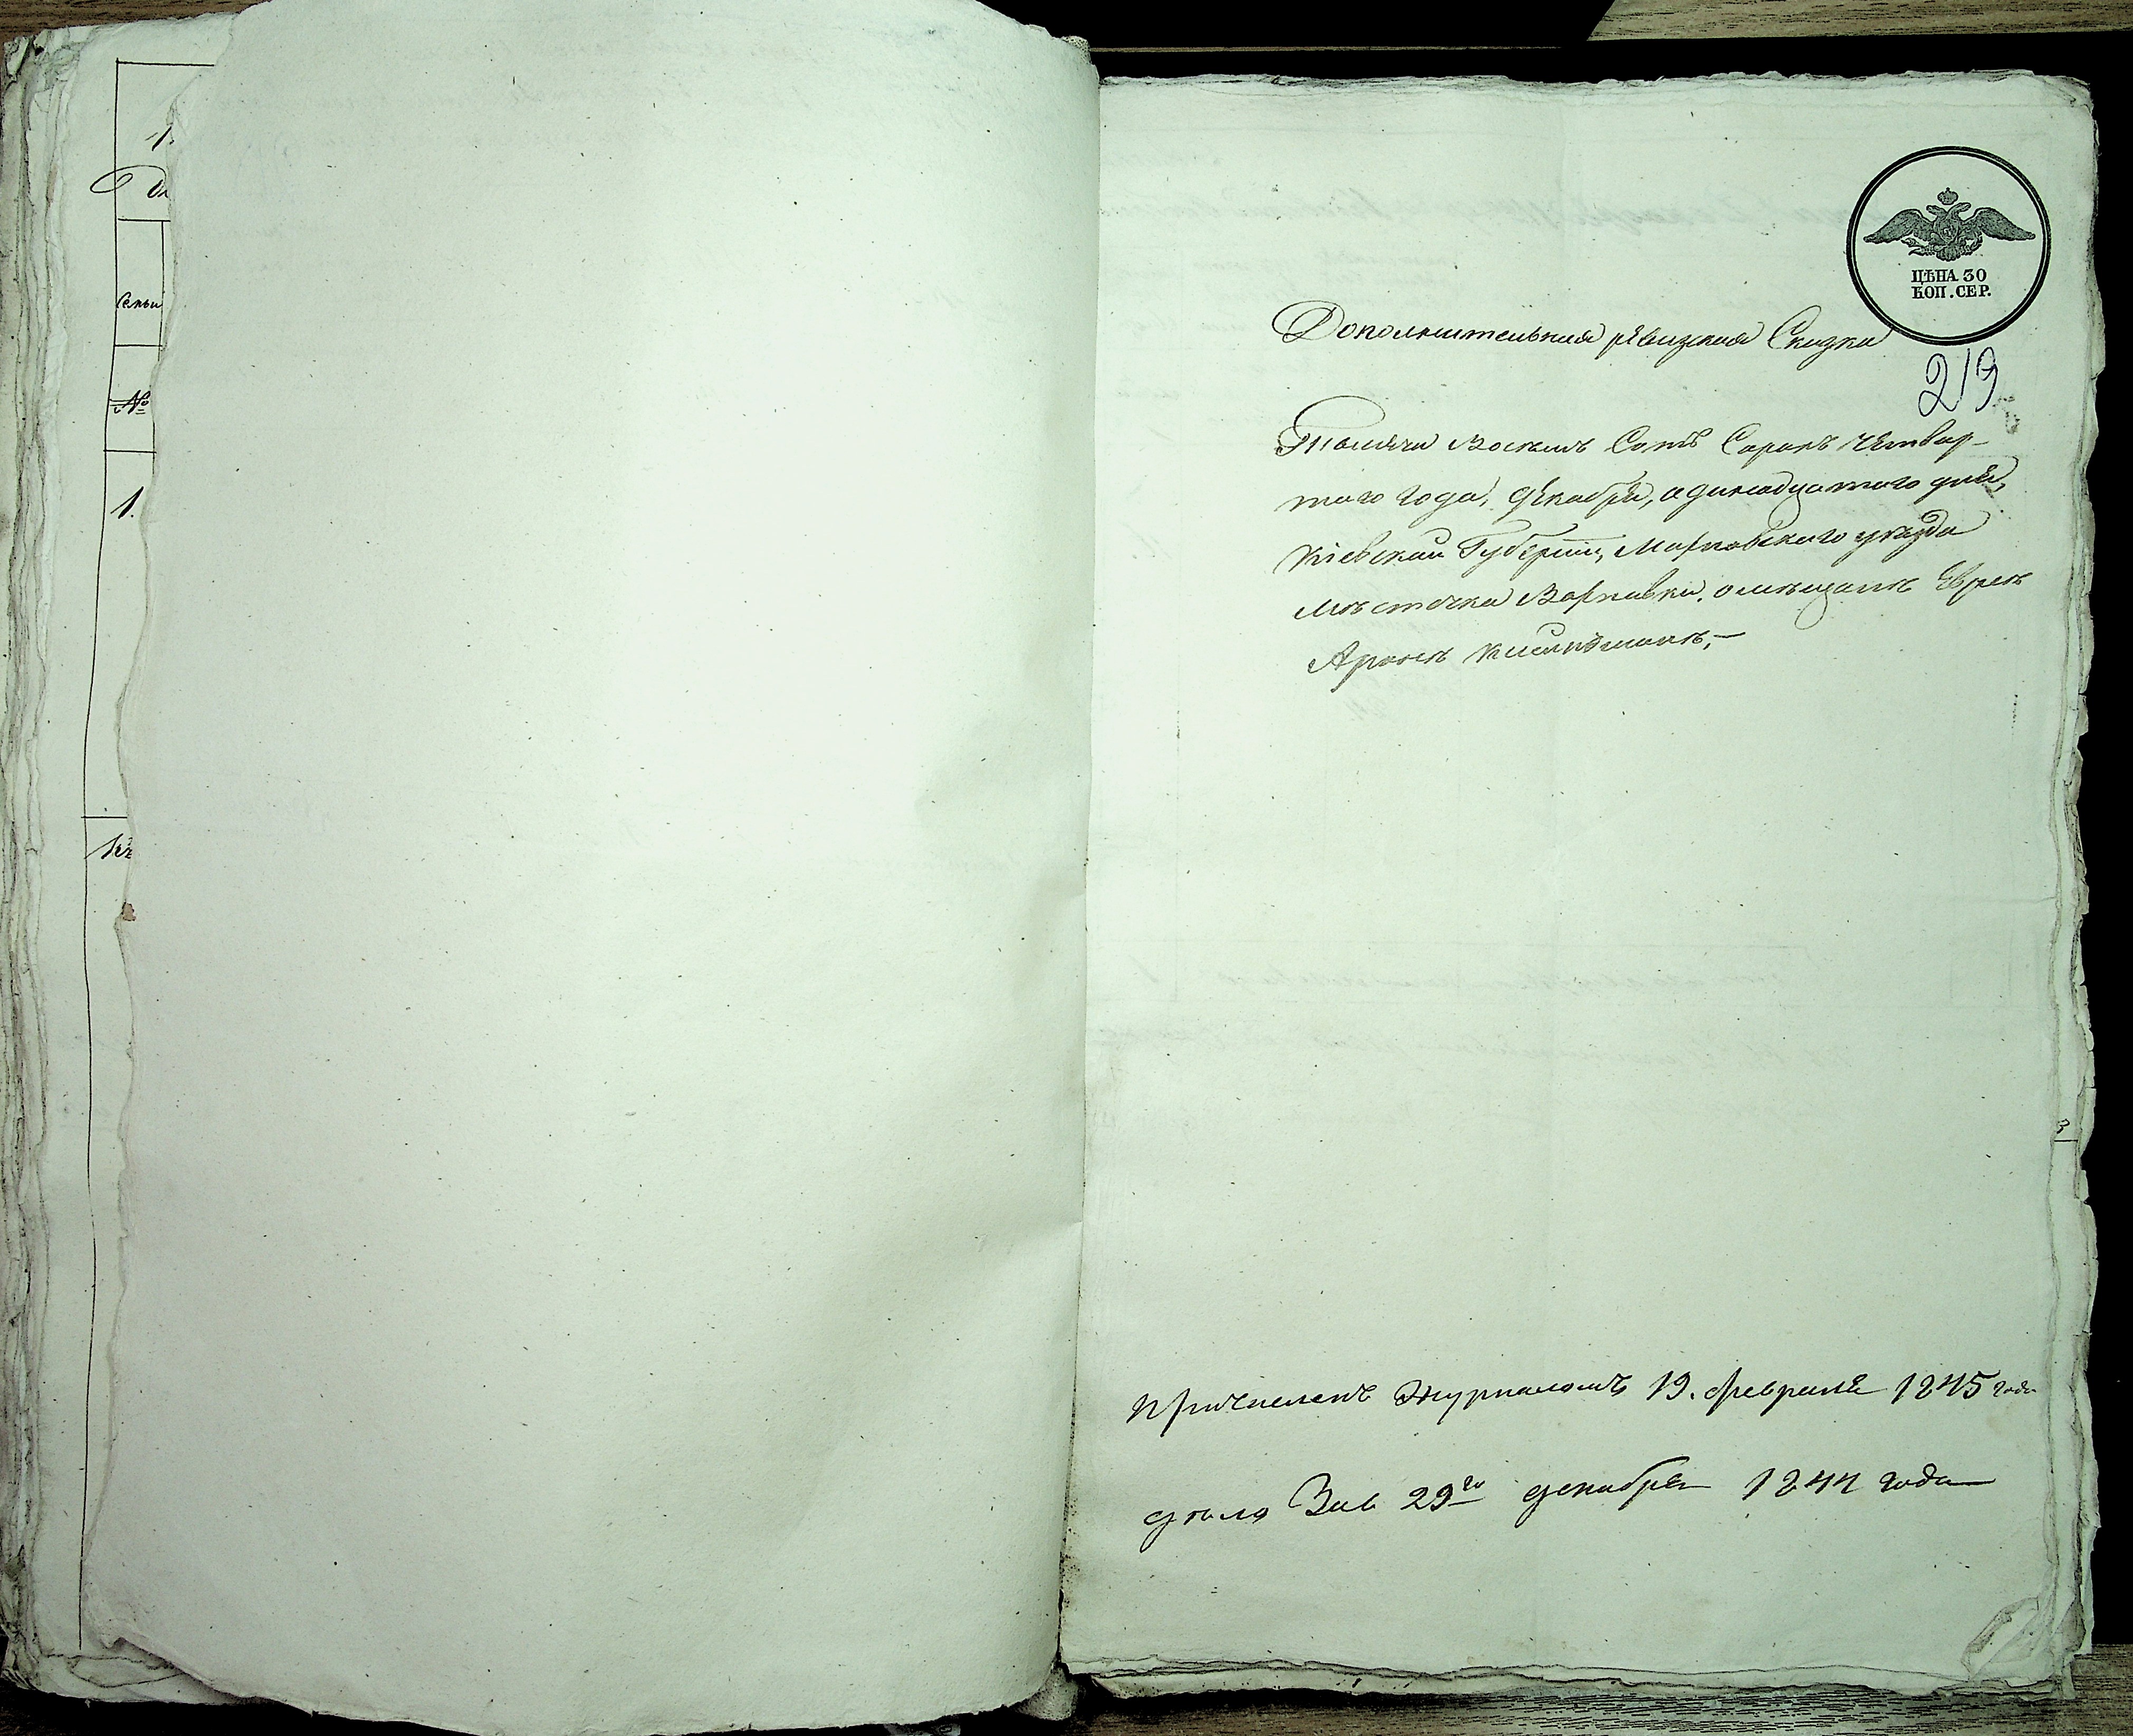 1.
Семьи
№
1.
ЦѢНА 30
КОП. СЕР.
Дополнительная ревизская Сказка
219
Тысяча Восемь Сотъ Сорокъ четвер-
таго года, декабря, одинадцатого дня,
Кіевской Губерніи, Липовецкаго уѣзда
Мѣстечка Ворновки, о мѣщанѣ Евреѣ
Аронѣ
Причисленъ Журналомъ 19. февраля 1845 года
дѣло Зав 29го декабря 1844 года